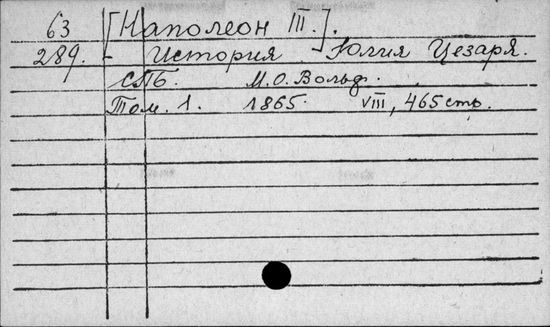 63 [Наполеон III.].
289. - История Юлия Цезаря.
СПБ. М.О.Вольф.
Том. 1. 1865. VIII, 465 стр.